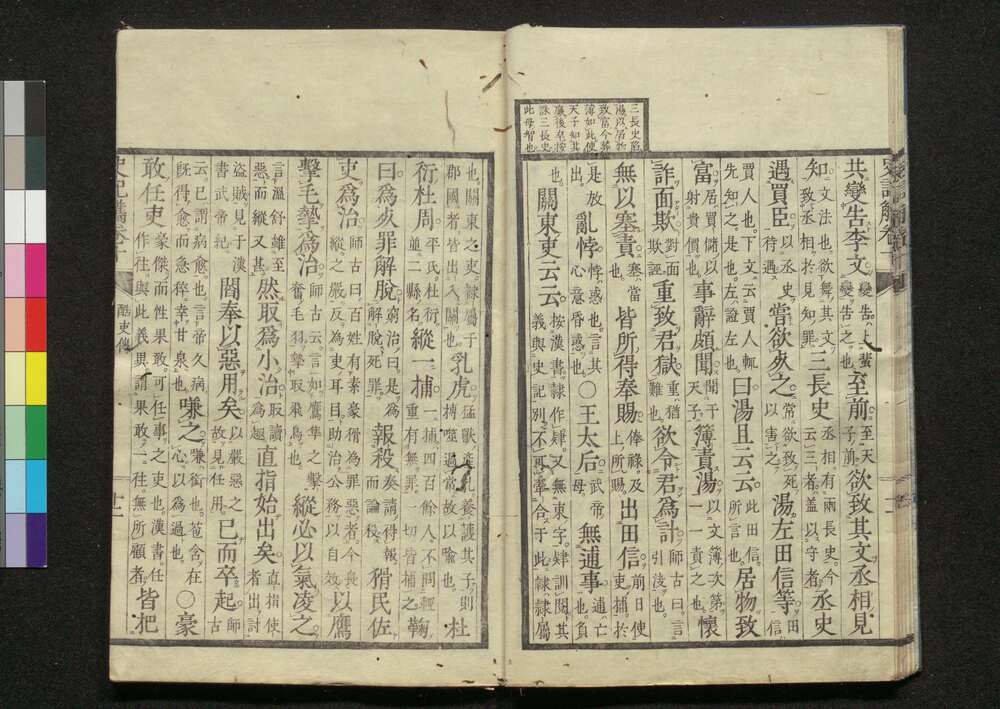 三長史陷
湯以居物
致富今葬
薄如此使
天子知其
廉後
誅三長史
此母智也
共變告李文變告上變告之也至前至天子前欲致其文丞相見
知文法也欲舞其文致丞相於見知罪三長史丞相有兩長史今云三者蓋以守者丞史
遇買臣以丞史待遇嘗欲死之常欲致死以害之湯左田信等田信
賈人也下文云賈人輒先知之是也左證左也曰湯且云云此田信所言也居物致
富居賈儲以射貴價也事辭頗聞聞于天子簿責湯以文簿次第一一責之也懷
詐面欺對面欺誣重致君獄重猶難也欲令君爲計師古曰言引決也
無以塞責塞當皆所得奉賜俸祿及上所賜出田信前日使吏捕於
是放出亂悖悖惑也言其心意昏惑也○王太后武帝母無逋事逋亡也負
也關東吏云云按漢書隸作肄又無東字肄訓閱其義與史記別不可牽合于此隸隸屬
也關東之吏隸屬于郡國者皆出入關也乳虎猛獸產乳養護其子則搏噬過常故以喩也杜
衍杜周平氏杜衍並二縣名縱一捕一捕四百餘人不問輕重有罪無罪一切皆捕之鞠
曰爲死罪解脫窮治曰是爲解脫死罪報殺奏請得報而論殺猾民佐
吏爲治師古曰百姓有素豪猾爲罪惡者今畏縱之嚴反爲吏耳目助治公務以自效以鷹
擊毛摯爲治師古云言如鷹隼之擊奮毛羽摯取飛鳥也縱必以氣凌之
言溫舒雖至惡而縱又甚然取爲小治取讀爲趣直指始出矣直指使者出討
盜賊見于漢書武帝紀閻奉以惡用矣以嚴惡之故見任用已而卒起師古
云已謂病愈也言帝久病既得愈而急猝幸甘泉也嗛之嗛銜也苞含在心以爲過也○豪
敢任吏豪傑而性果敢可任事之吏也漢書任作往與此義異謂果敢一往無所顧者皆把
酷吏傳
廿一